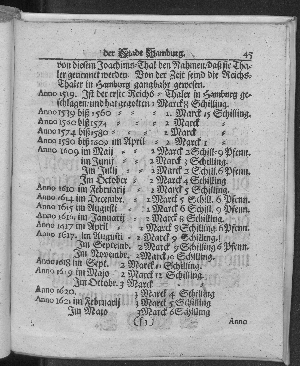 der Stadt Hamburg. 45
von diesem Joachims-Thal den Nahmen/ daß sie Tha-
ler genennet werden. Von der Zeit seind die Reichs-
Thaler in Hamburg gangbahr gewesen.
Anno 1519. Ist der erste Reichs-Thaler in Hamburg ge-
schlagen/ und hat gegolten 1 Marck 8 Schilling.
Anno 1539 biß 1560 1. Marck 15 Schilling.
Anno 1530 biß 1574 2 Marck
Anno 1574 biß 1580 2 Marck
Anno 1580 biß 1609 im April 2 Marck 1
Anno 1609 im Majo 2 Marck 2 Schill. 9 Pfenn.
im Junii 2 Marck 3 Schilling.
Im Julij 2 Marck 3 Schill. 6 Pfenn.
Im October 2 Marck 4 Schilling.
Anno 1610 im Februarij 2 Marck 5 Schilling
Anno 1614 im Decembr. 2 Marck 5 Schill. 6 Pfenn.
Anno 1615 im Augusti 2 Marck 6 Schill. 6 Pfenn.
Anno 1616 im Januarij 2 Marck Schilling.
Anno 1617 im April 2 Marck 8 Schilling 6 Pfenn.
Anno 1617. im Augusti 2 Marck 9 Schilling.
Im Septemb. 2 Marck 9 Schilling 6 Pfenn.
Im Novembr. 2 Marck 10 Schilling.
Anno 1618 im Sept. 2 Marck 11 Schilling.
Anno 1619 im Majo 2 Marck 12 Schilling.
Im Octobr. 3 Marck
Anno 1620. 3 Marck 4 Schilling
Anno 1621 im Februarij 3 Marck 5 Schilling
Im Majo 3 Marck 6 Schilling
Anno